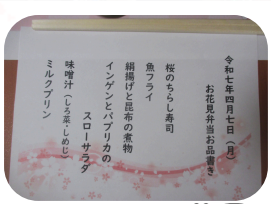 令和七年四月七日(月)
お花見弁当お品書き
桜のちらし寿司
魚フライ
絹揚げと昆布の煮物
インゲンとパプリカの
スローサラダ
味噌汁(しろ菜・しめじ)
ミルクプリン